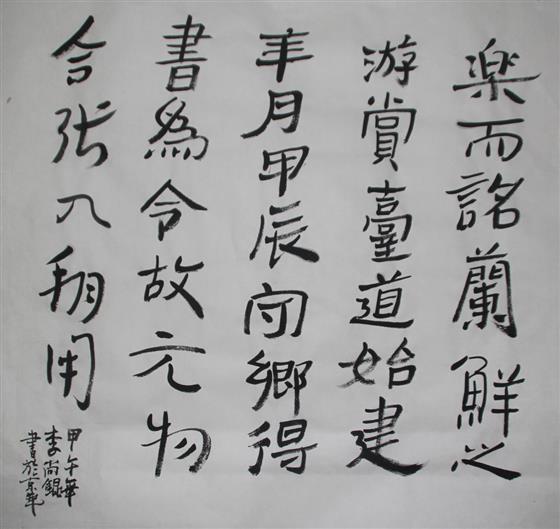 楽而詺蘭鮮之
游賞臺道始建
年月甲辰向鄉得
書為令故元物
合張入翔用
甲午
李尚錕
書於京華